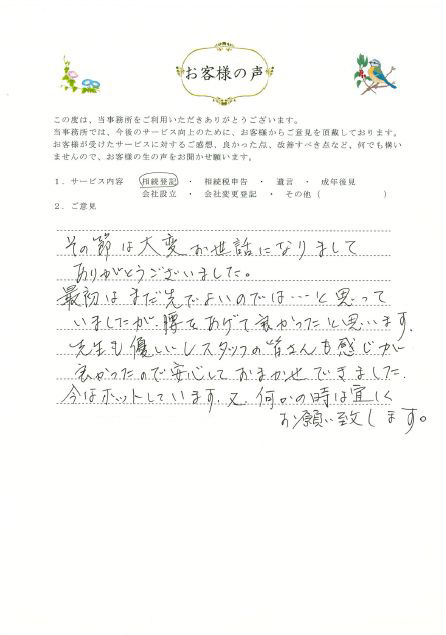 お客様の声
この度は、当事務所をご利用いただきありがとうございます。
当事務所では、今後のサービス向上のために、お客様からご意見を頂戴しております。
お客様が受けたサービスに対するご感想、良かった点、改善すべき点など、何でも構い
ませんので、お客様の生の声をお聞かせ願います。
１．サービス内容　相続登記　・　相続税申告　・　遺言　・　成年後見
会社設立　・　会社変更登記　・　その他（　　　　　）
２．ご意見
その節は大変お世話になりまして
ありがとうございました。
最初はまだ先でよいのでは…と思って
いましたが腰をあげて良かったと思います.
先生も優しいしスタッフの皆さんも感じが
良かったので安心しておまかせできました.
今はホットしています. 又、何かの時は宜しく
お願い致します。